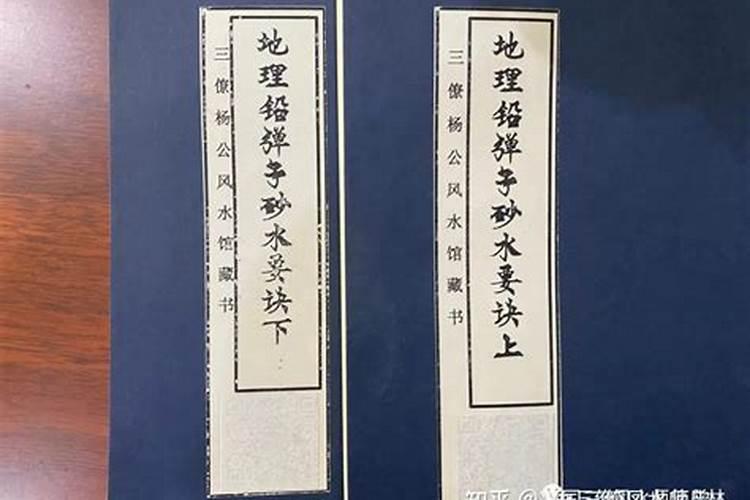 地理铅弹子砂水要诀上
三僚杨公风水馆藏书
地理铅弹子砂水要诀下
三僚杨公风水馆藏书
知乎